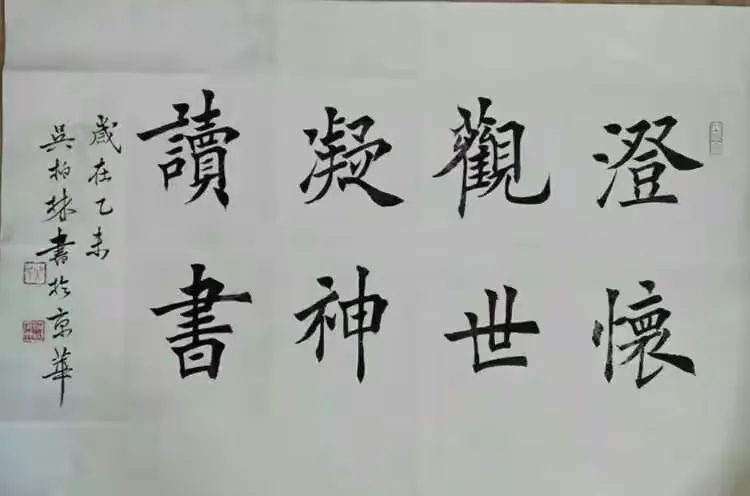 澄懷
觀世
凝神
讀書
歲在乙未
吳柏林書於京華